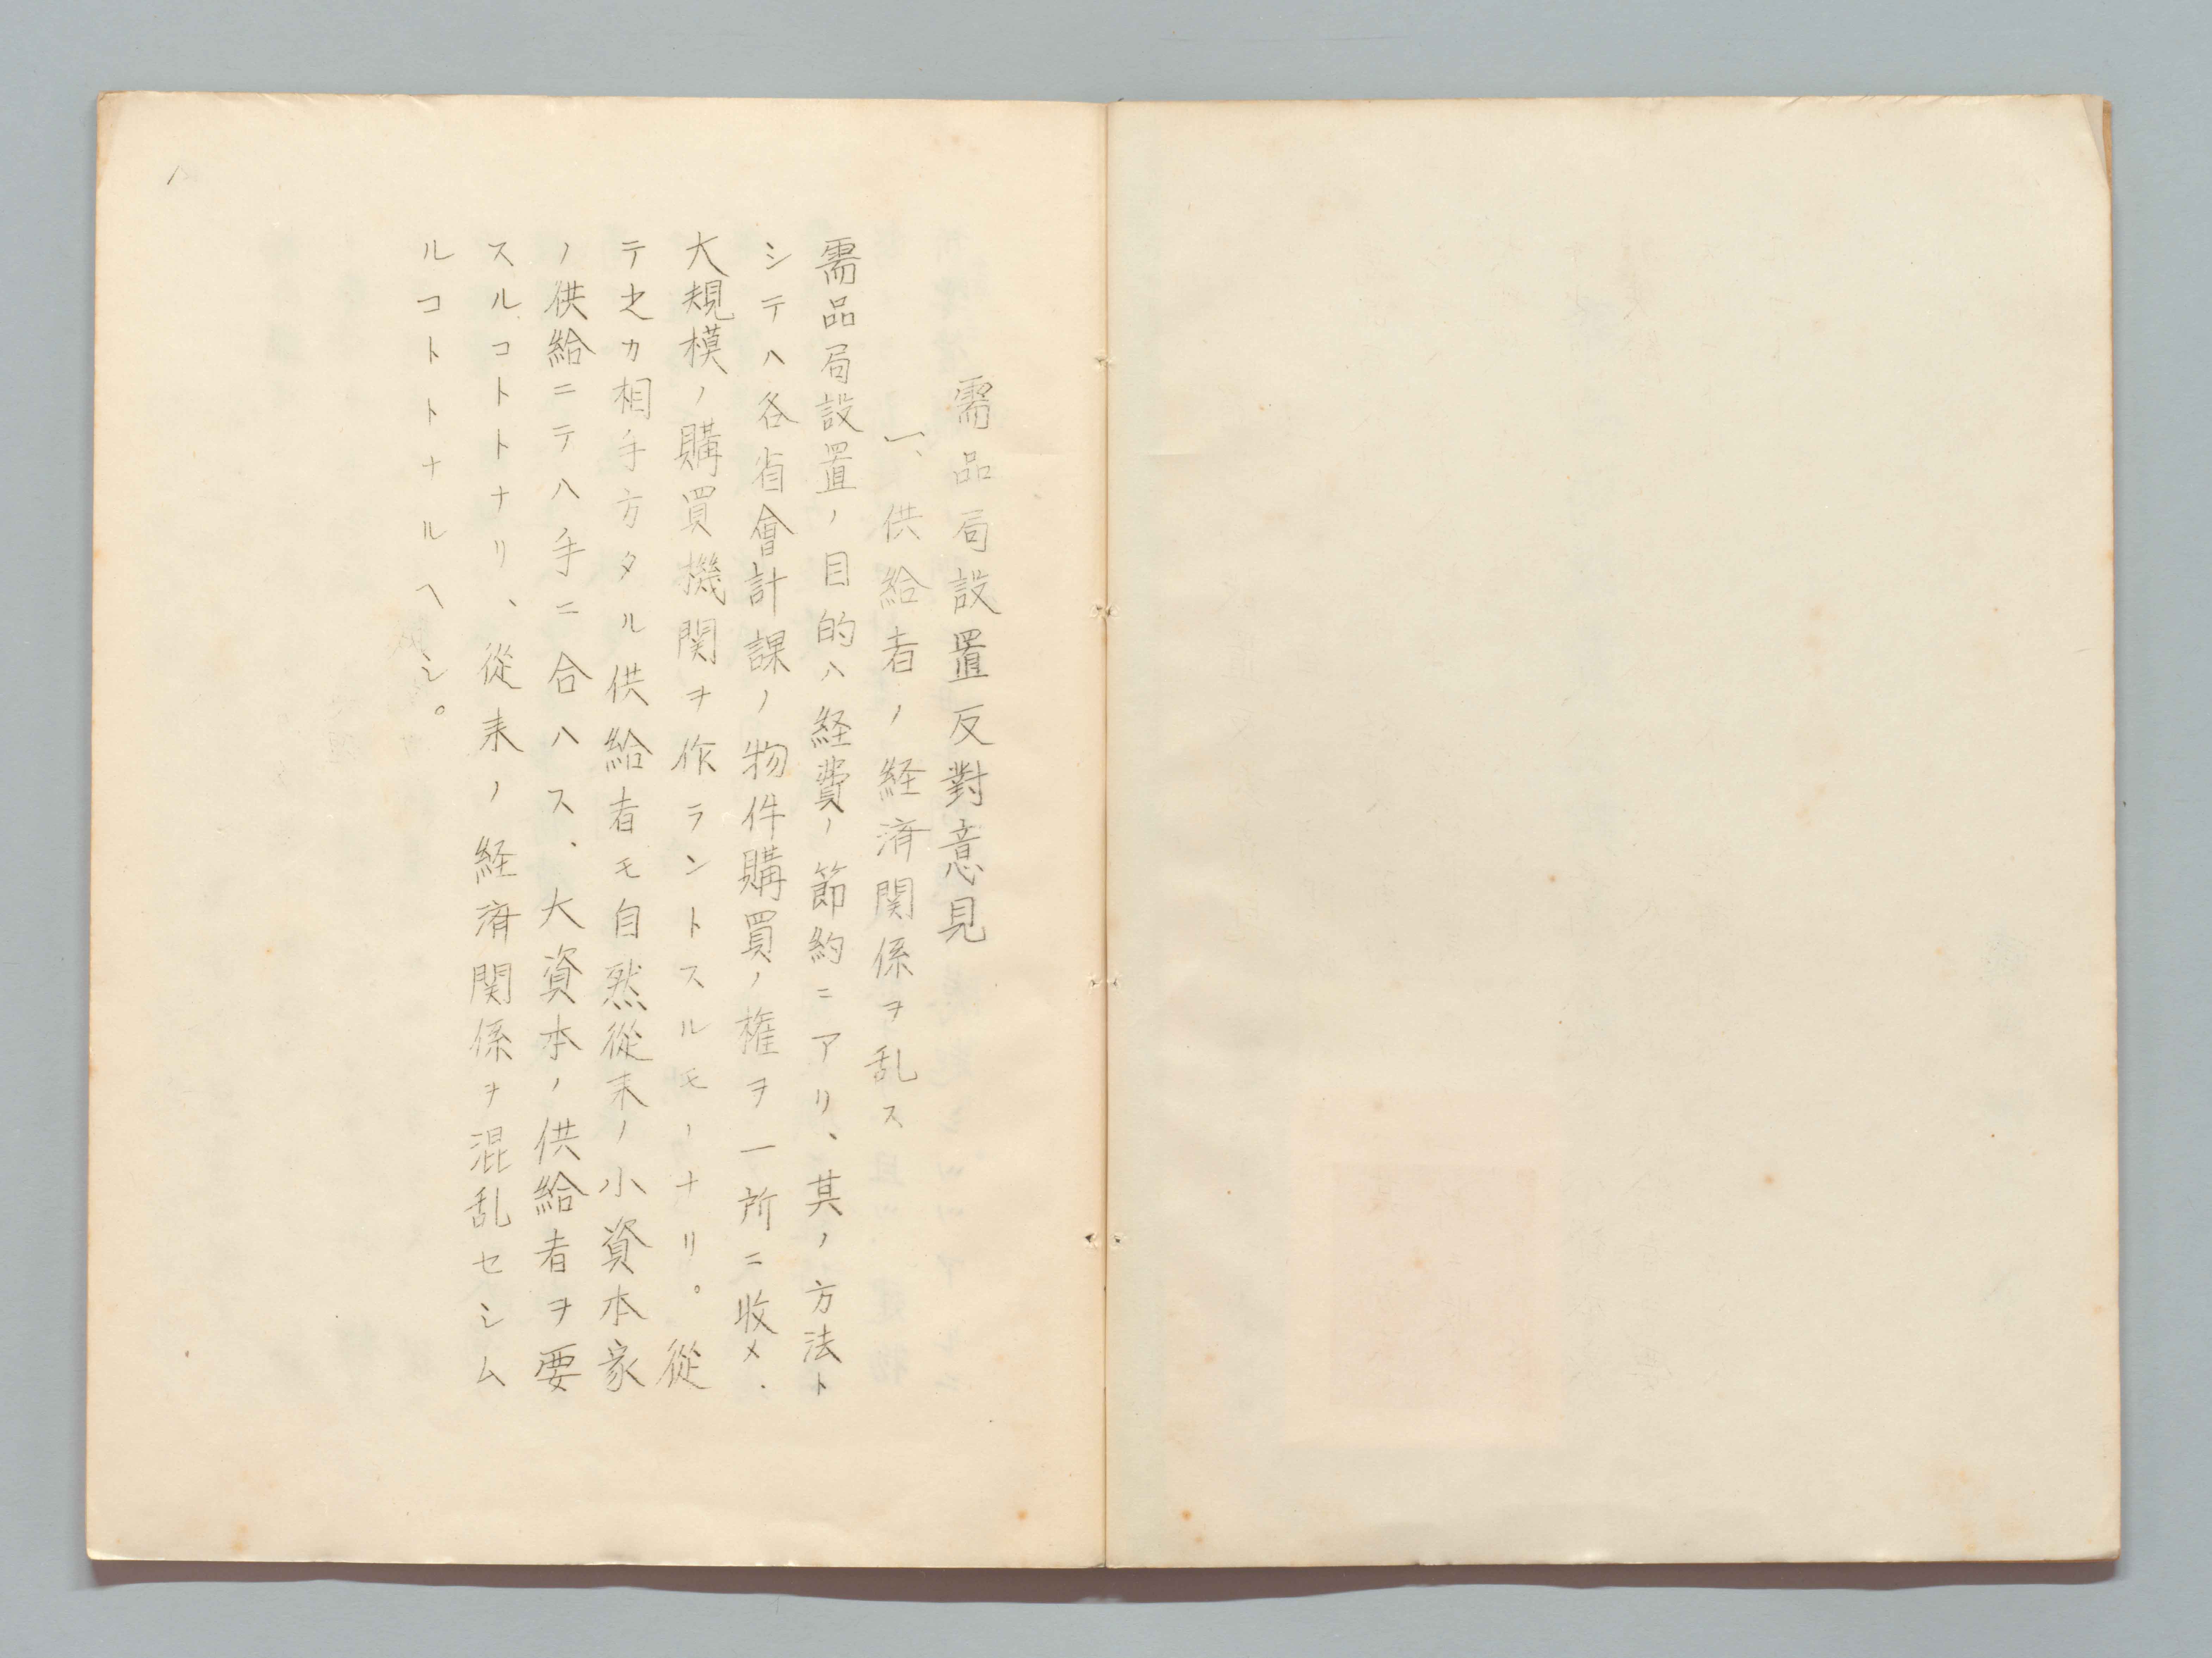 需品局設置反對意見
一、供給者ノ経済関係ヲ乱ス
需品局設置ノ目的ハ経費ノ節約ニアリ、其ノ方法ト
シテハ各省會計課ノ物件購買ノ権ヲ一所ニ收メ、
大規模ノ購買機関ヲ作ラントスルモノナリ。從
テ之カ相手方タル供給者モ自然從来ノ小資本家
ノ供給ニテハ手ニ合ハス、大資本ノ供給者ヲ要
スルコトトナリ、從来ノ経済関係ヲ混乱セシム
ルコトトナルヘシ。